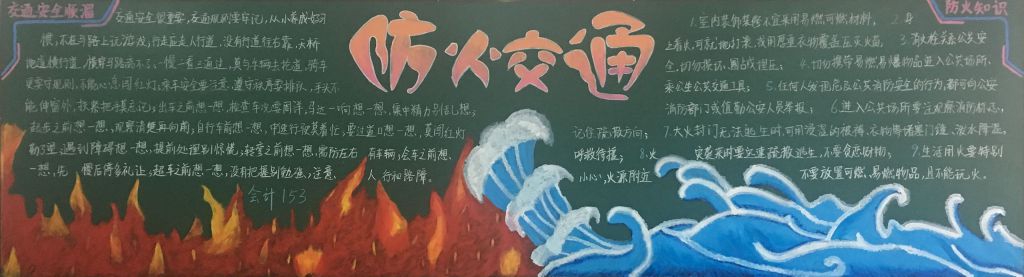 交通安全顺溜
交通安全很重要,交通规则要牢记,从小养成好习
惯,不在马路上玩游戏;行走应走人行道,没有行道往右靠,天桥
地道横行道,横穿马路离不了,慢一看二通过,莫与车辆去抢道,骑车
更要守规则,不能心急闯红灯;乘车安全要注意,遵守秩序要排队,手头不
能伸窗外,扶紧把手莫忘记;出车之前想一想,检查车况要周详,
起步之前想一想,观察清楚再向前;自行车前想一想,中速行驶莫着忙,要过道口想一想,莫闯红灯
想一想,提前处理别惊慌;转弯之前想一想,需防左右有车辆,会车之前想
一想,先慢后停多礼让;超车之前想一想,没有把握别勉强,注意
人行和路障。
会计153
防火交通
防火知识
1.室内装饰装修不宜采用易燃可燃材料。2.身
上着火,可就地打滚,或用厚重衣物覆盖压灭火苗,3.
全,切勿损坏、圈占埋压;4.切勿携带易燃易爆物品进入公共场所、
乘坐公共交通工具;5.任何人发现危及公共消防安全的行为,都可向公安
消防部门或值勤公安人员举报;6.进入公共场所要注意观察消防标志,
记住疏散方向;7.大火封门无法逃生时,可用浸湿的被褥、衣物等堵塞门缝、泼水降温,
呼救待援;8.火灾袭来时要迅速疏散逃生,不要贪恋财物;9.生活用火要特别
小心,火源附近不要放置可燃、易燃物品,且不能玩火。